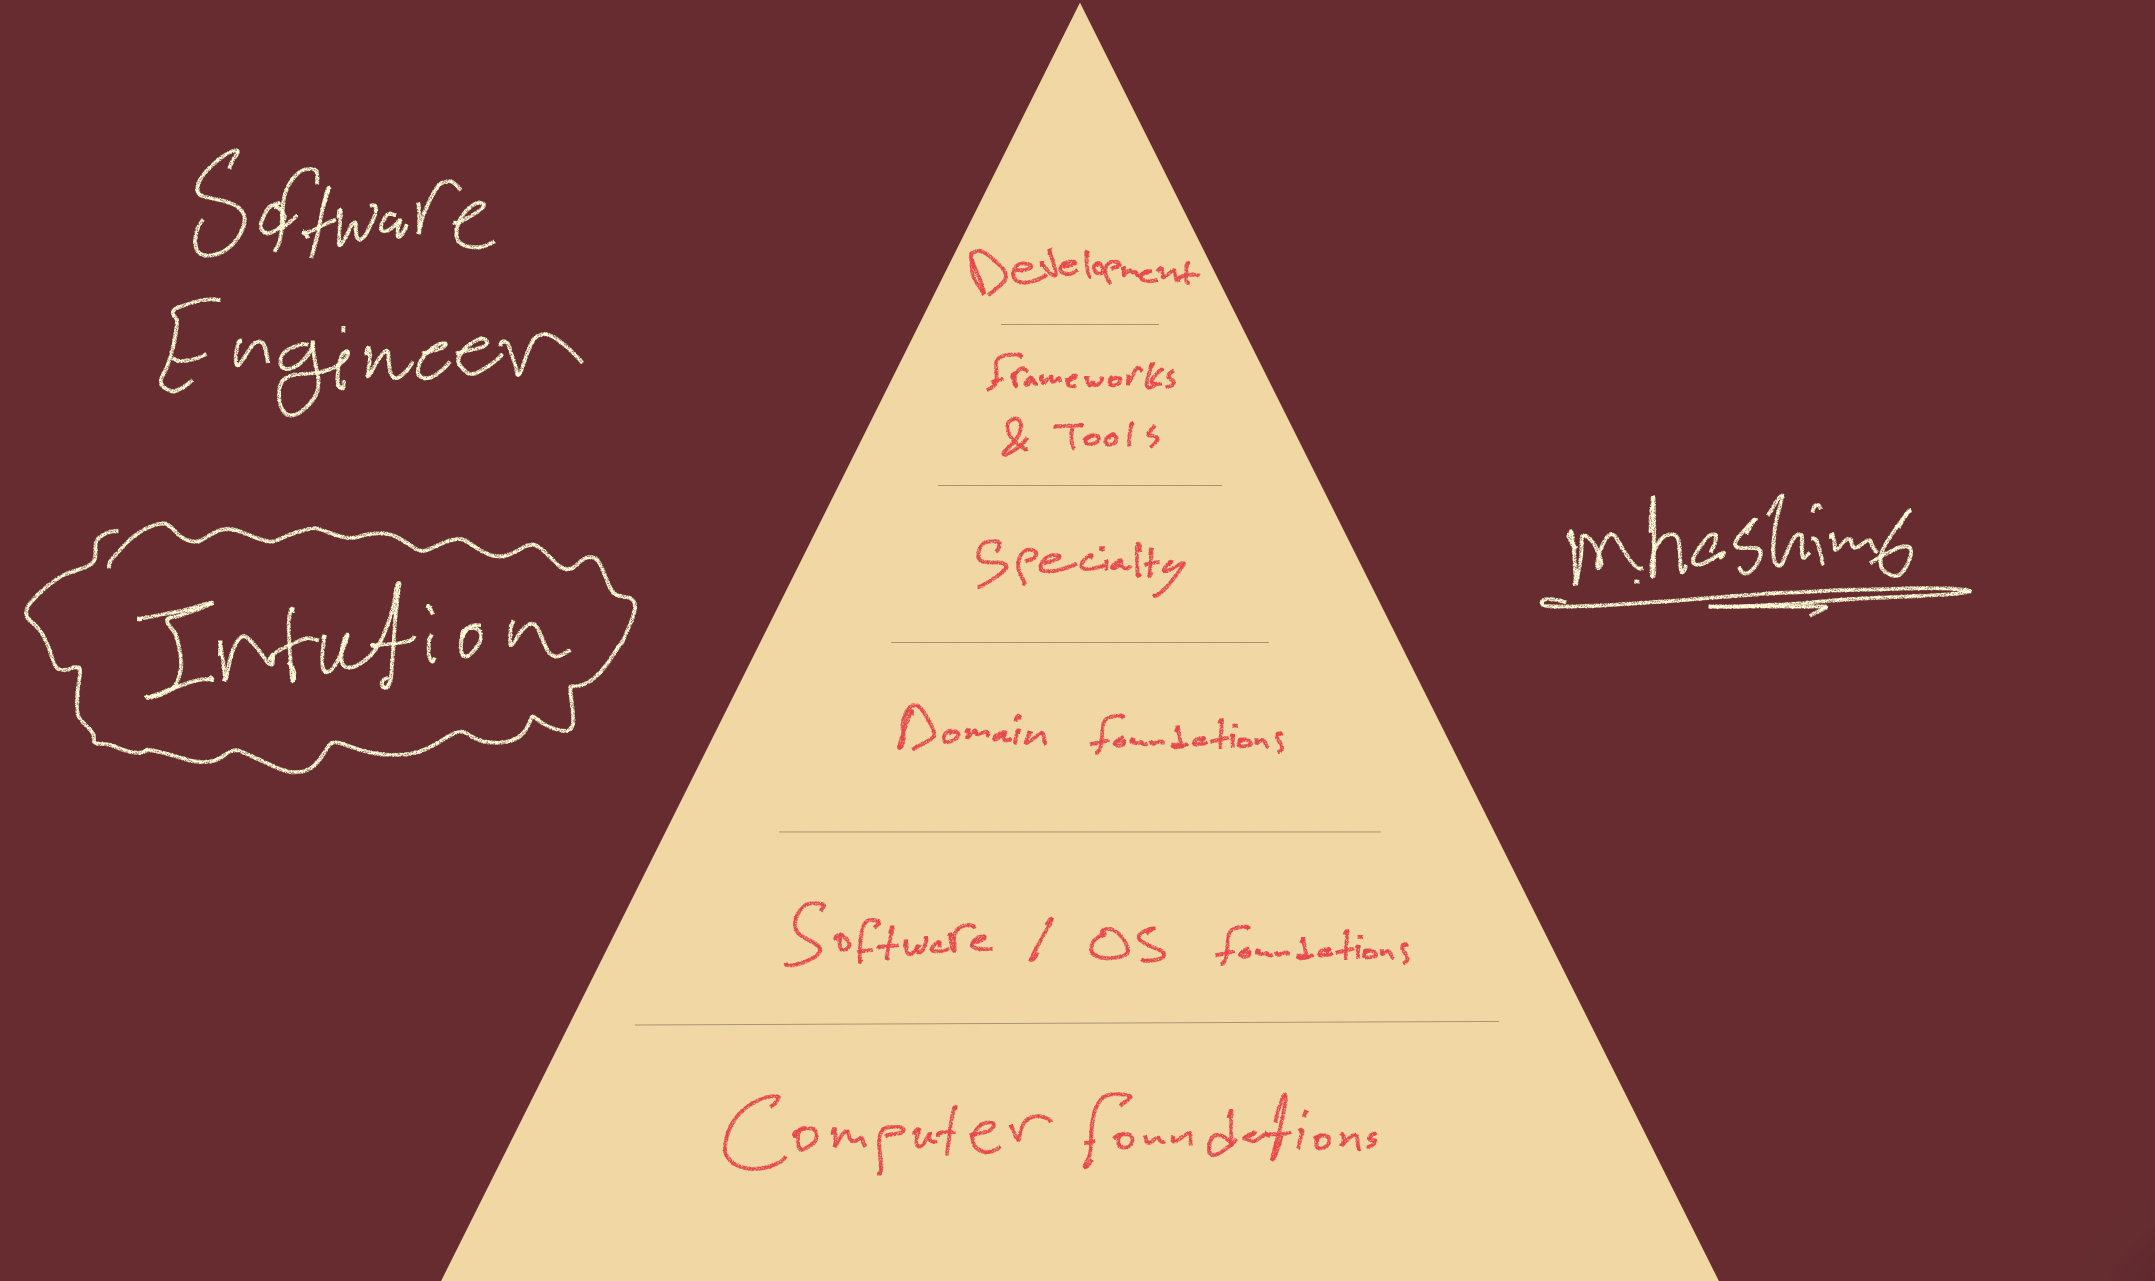 Software
Engineer
Intution
Development
frameworks
& Tools
Specialty
Domain foundations
Software / OS foundations
Computer foundations
m.hashim6